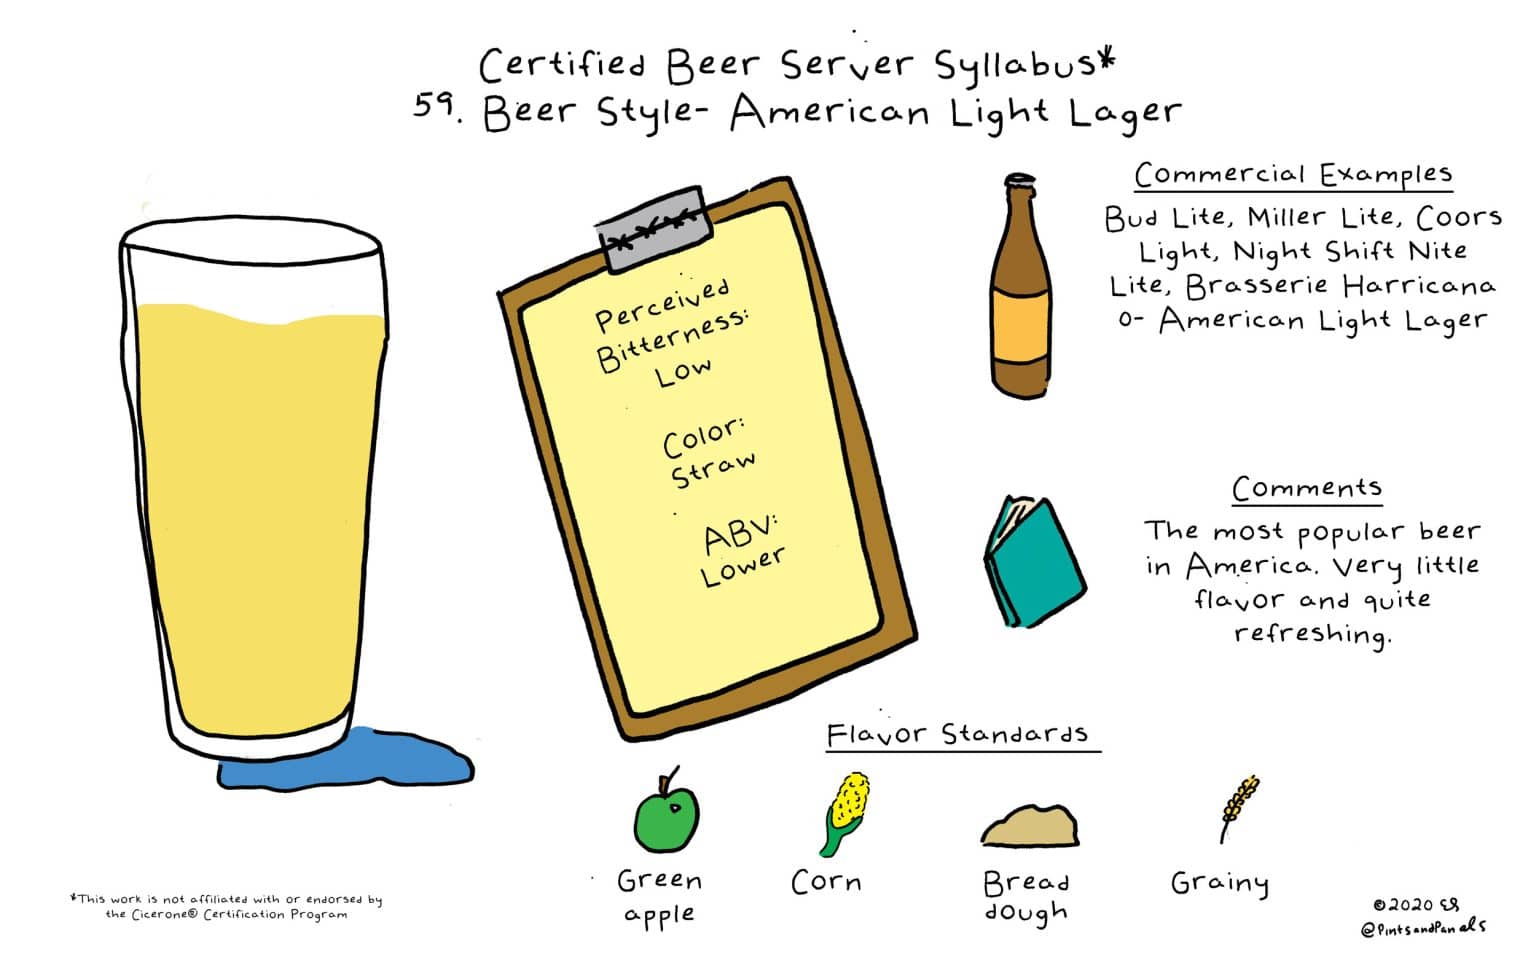 Certified Beer Server Syllabus*
59. Beer Style- American Light Lager
Perceived
Bitterness:
Low
Color:
Straw
ABV:
Lower
Commercial Examples
Bud Lite, Miller Lite, Coors
Light, Night Shift Nite
Lite, Brasserie Harricana
0- American Light Lager
Comments
The most popular beer
in America. Very little
flavor and quite
refreshing.
Flavor Standards
Green
apple
Corn
Bread
dough
Grainy
*This work is not affiliated with or endorsed by
the Cicerone® Certification Program
©2020 ES
@PintsandPanels